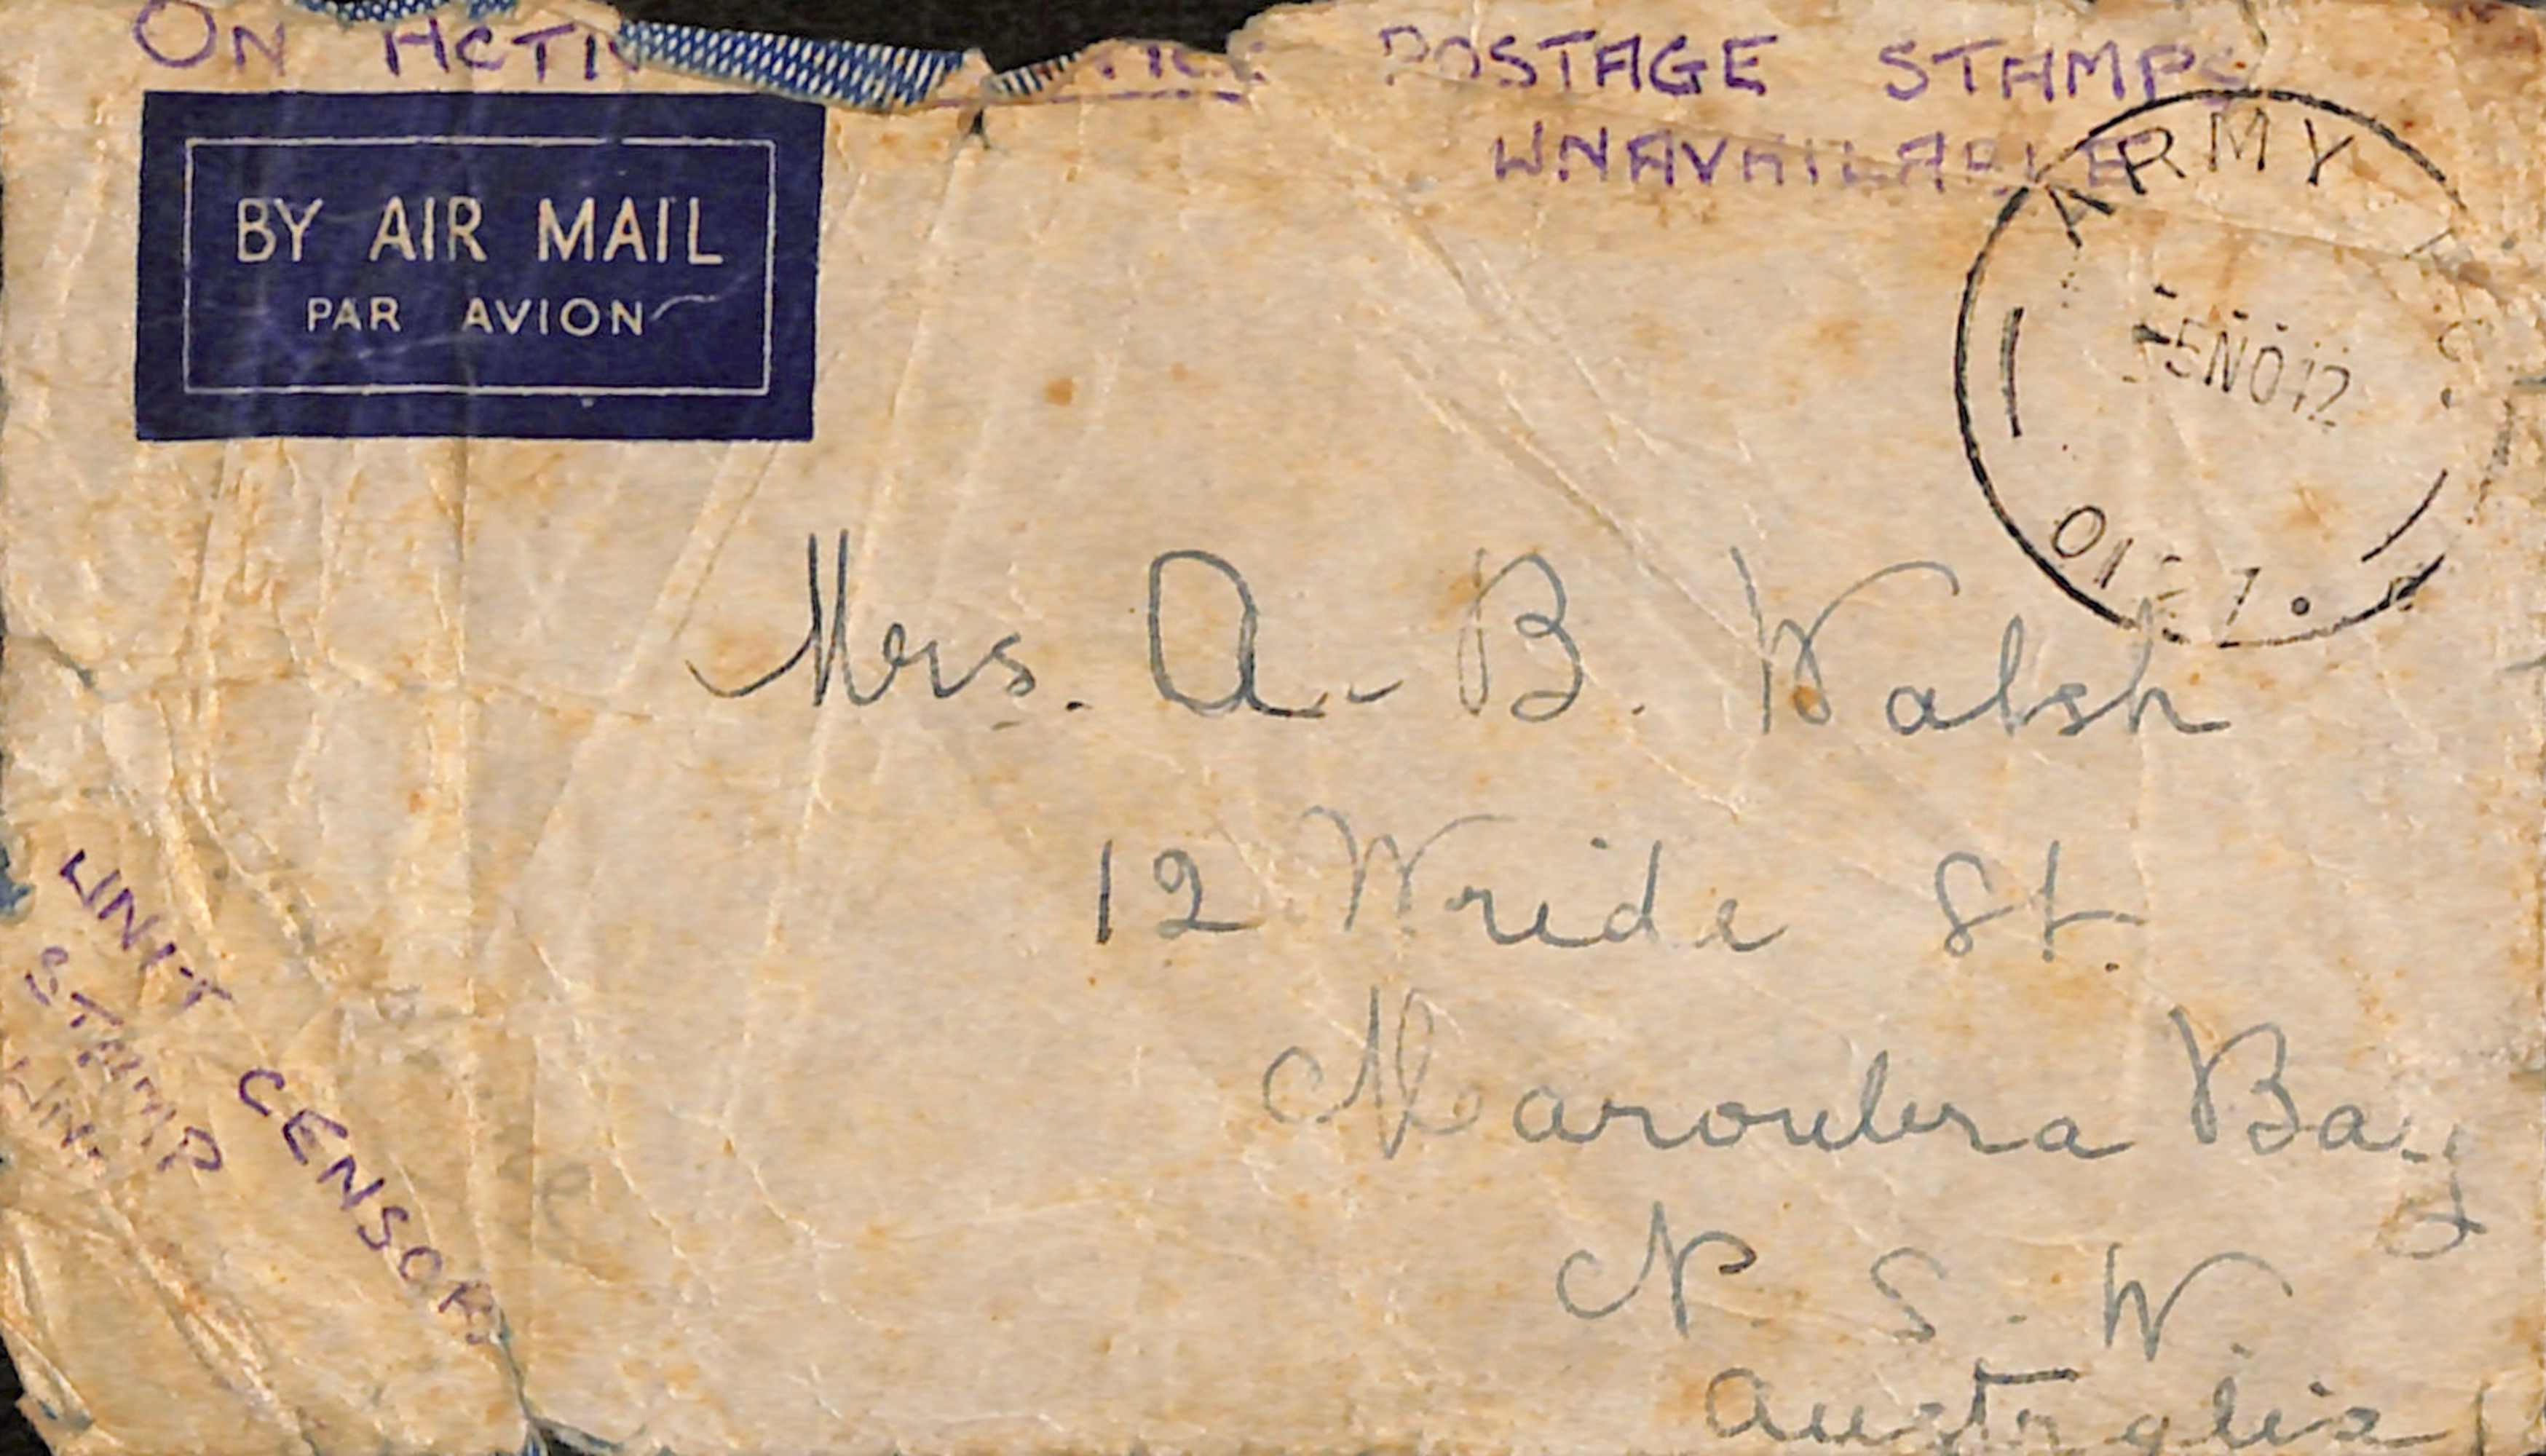 ON ACTIVE SERVICE POSTAGE STAMPS
UNAVAILABLE
BY AIR MAIL
PAR AVION
ARMY
5 NO 42
Mrs. A. B. Walsh
12 Wride St.
Maroubra Bay
N. S. W.
Australia
UNIT CENSOR
STAMP